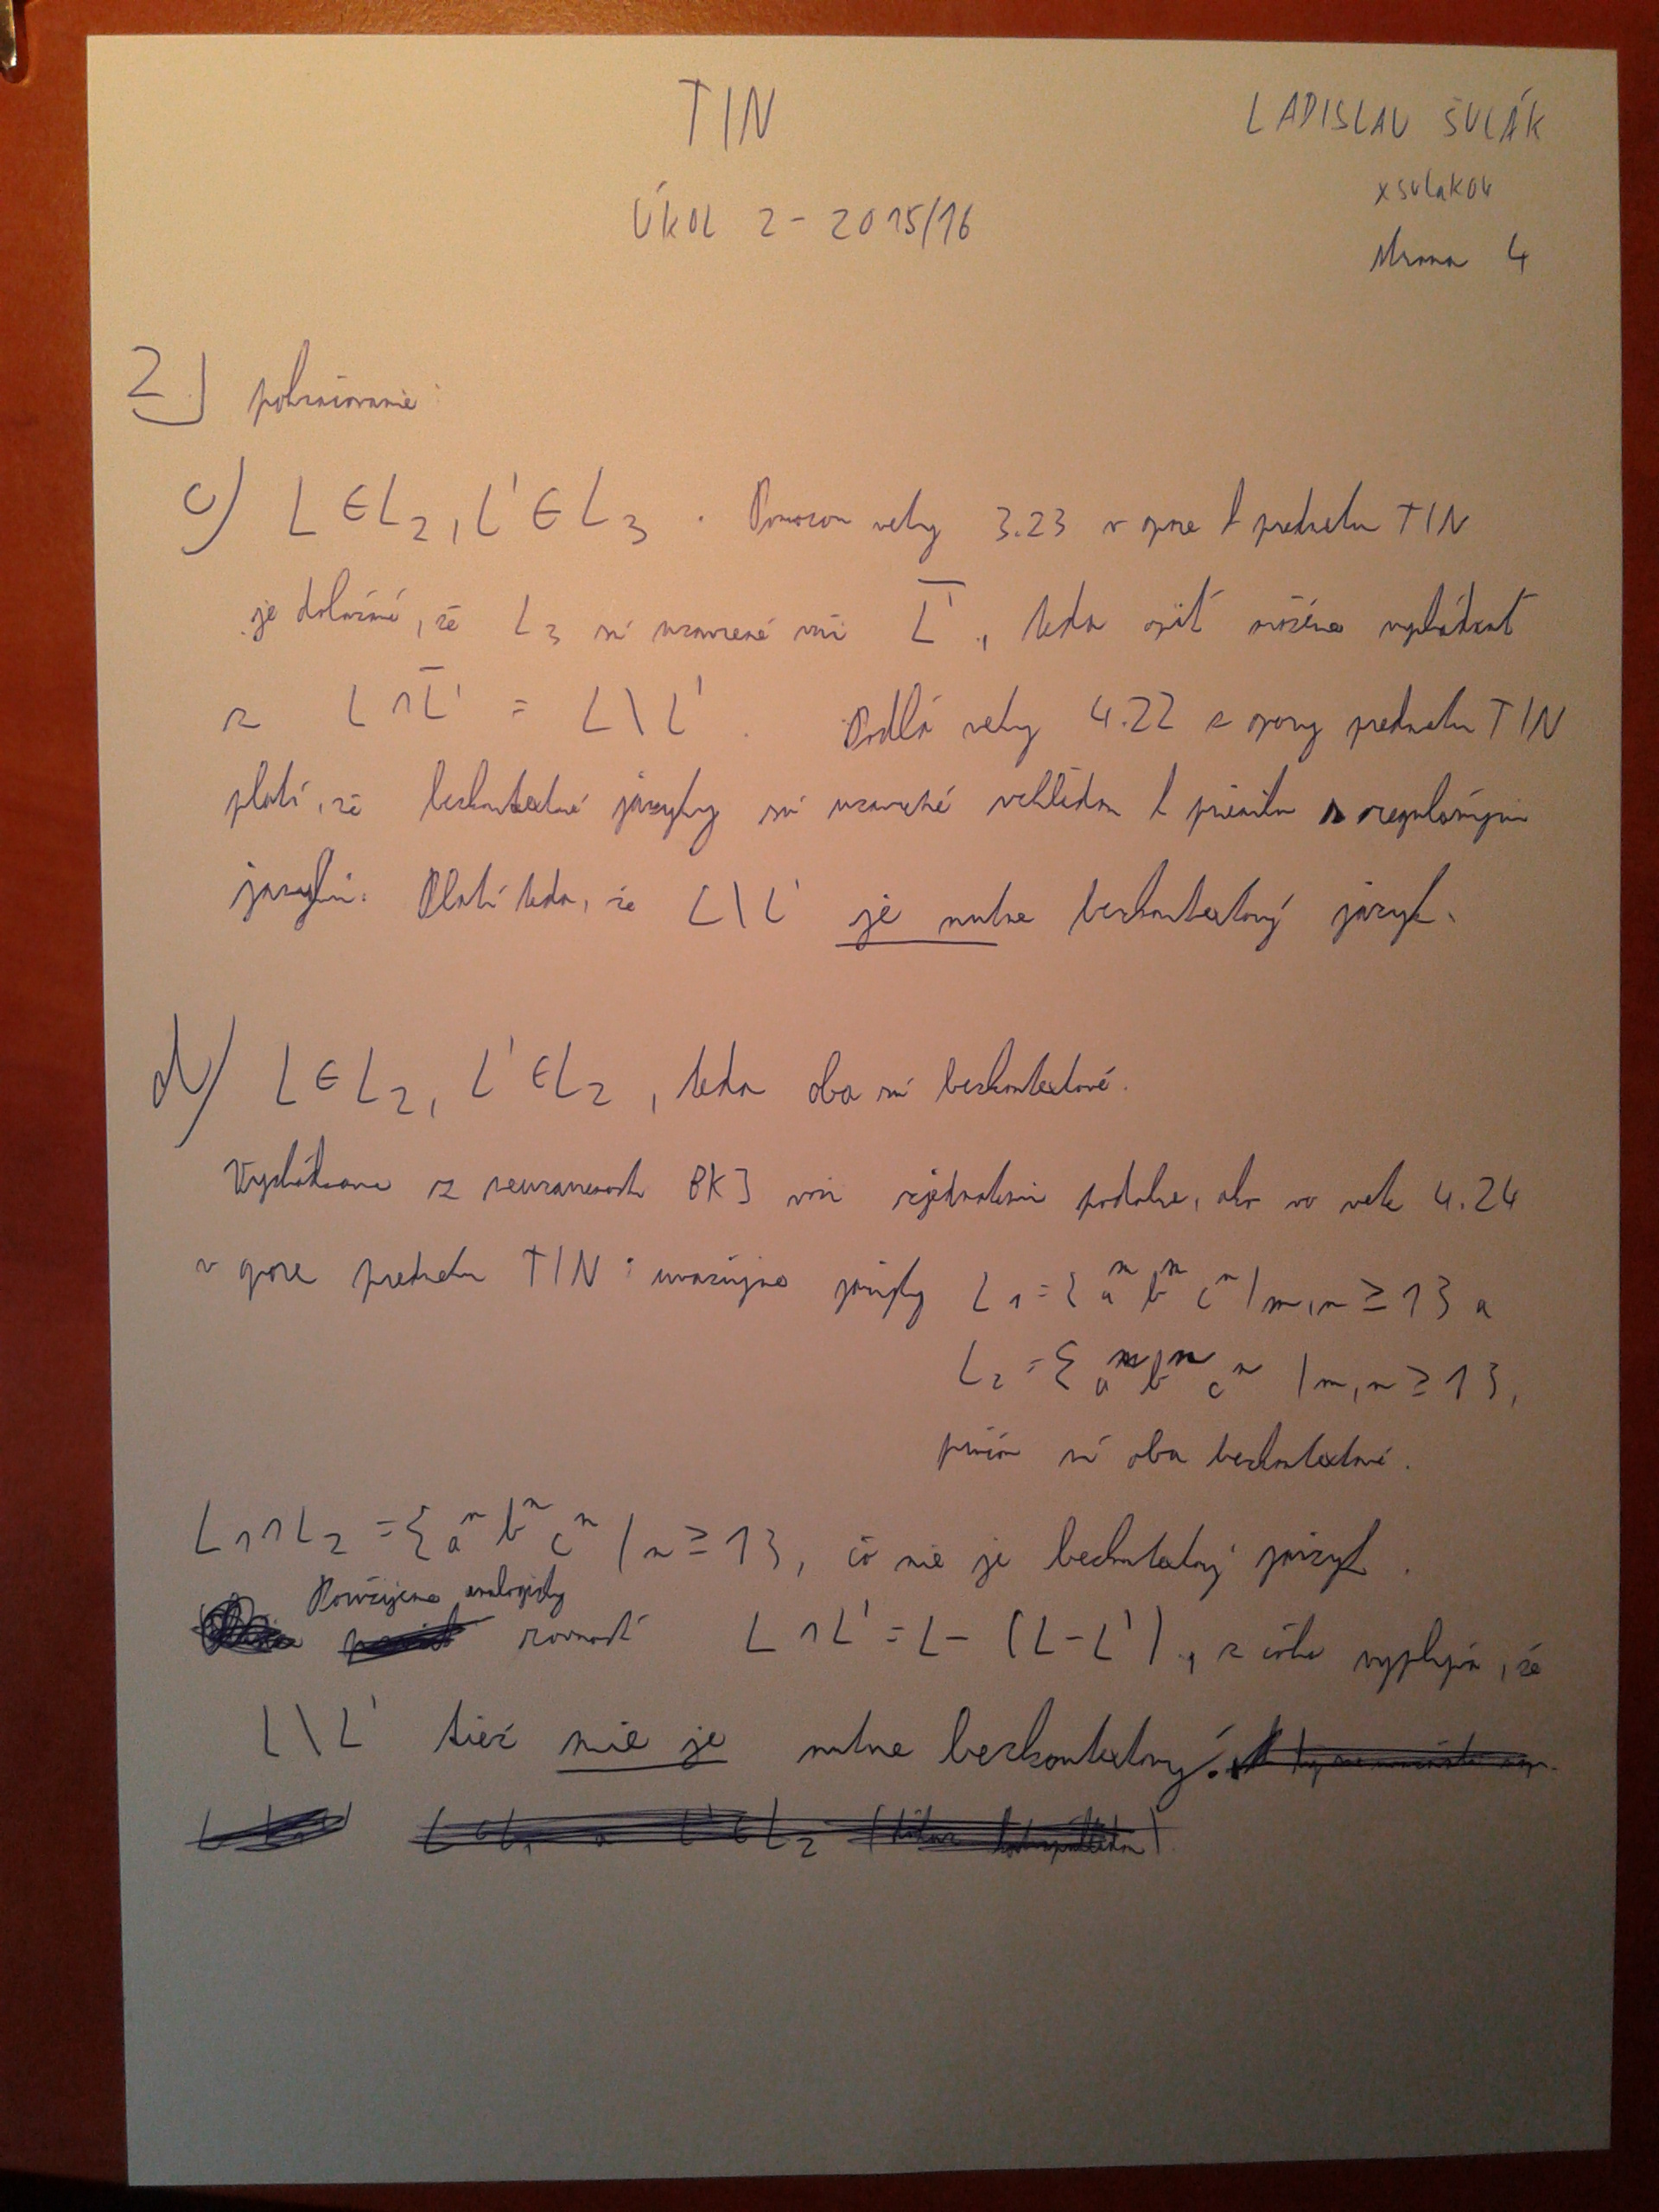 TIN
LADISLAV ŠULÁK
ÚKOL 2 - 2015/16
xsulak04
strana 4
2) pokračovanie:
c) L ∈ L₂, L' ∈ L₃. Pomocou vety 3.23 v opore k predmetu TIN
je dokázané, že L₃ sú uzavrené voči L̅', teda opäť môžeme vychádzať
z L ∩ L̅' = L \ L'. Podľa vety 4.22 z opory predmetu TIN
platí, že bezkontextové jazyky sú uzavreté vzhľadom k prieniku s regulárnymi
jazykmi. Platí teda, že L \ L' je nutne bezkontextový jazyk.
d) L ∈ L₂, L' ∈ L₂, teda oba sú bezkontextové.
Vychádzame z neuzavrenosti BKJ voči zjednoteniu podobne, ako vo vete 4.24
v opore predmetu TIN: uvažujme jazyky L₁ = {aᵐ bᵐ cⁿ | m, n ≥ 1} a
L₂ = {aᵐ bⁿ cⁿ | m, n ≥ 1},
pričom sú oba bezkontextové.
L₁ ∩ L₂ = {aⁿ bⁿ cⁿ | n ≥ 1}, čo nie je bezkontextový jazyk.
Použijeme analogicky
rovnosť L ∩ L' = L - (L - L'), z čoho vyplýva, že
L \ L' tiež nie je nutne bezkontextový.